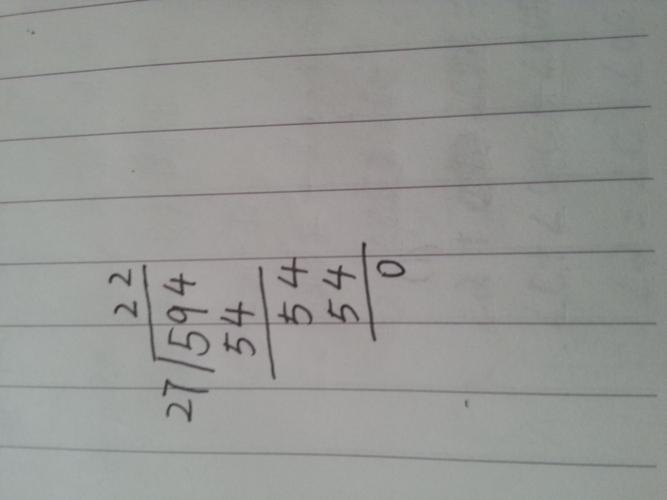 22
27/594
54
54
54
0